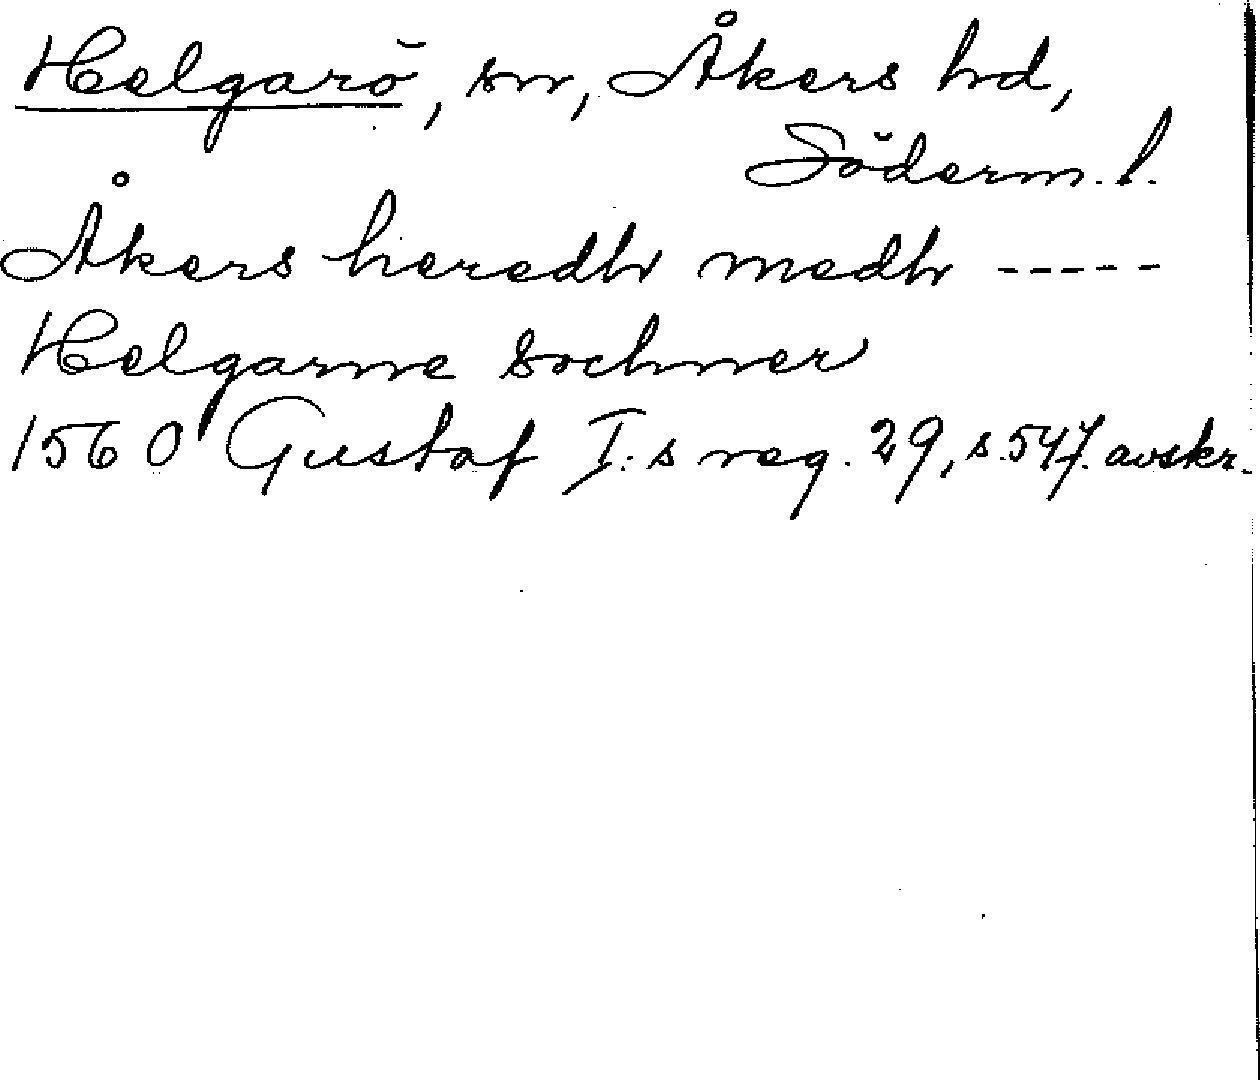 Helgarö, sn, Åkers hd,
Söderm. l.
Åkers heredh medh -----
Helgarne sochner
1560 Gustaf I:s reg. 29, s. 547. avskr.